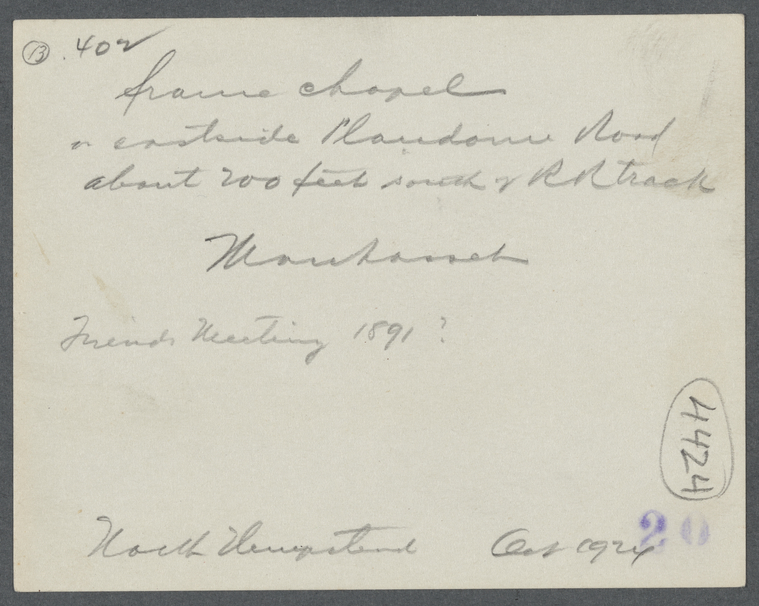 13 .402
frame chapel
on eastside Plandome Road
about 200 feet south of RR track
Manhasset
Friends Meeting 1891?
4424
20
North Hempstead Oct 1924